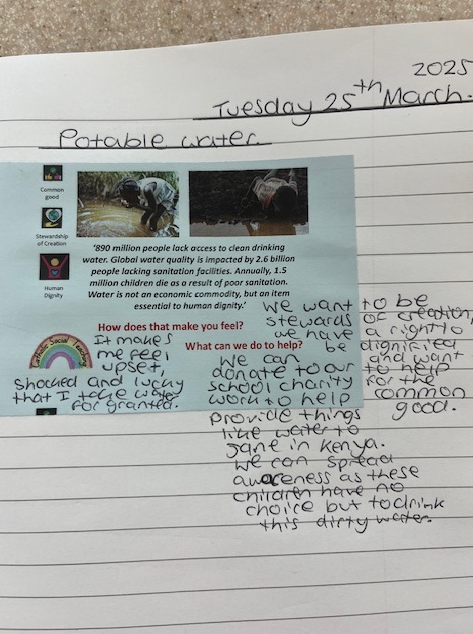 2025
Tuesday 25th March.
Potable water.
Common
good
Stewardship
of Creation
Human
Dignity
'890 million people lack access to clean drinking
water. Global water quality is impacted by 2.6 billion
people lacking sanitation facilities. Annually, 1.5
million children die as a result of poor sanitation.
Water is not an economic commodity, but an item
essential to human dignity.'
How does that make you feel?
Catholic Social Teaching
It makes
me feel
upset,
shocked and lucky
that I take water
for granted.
What can we do to help?
We can
donate to our
school charity
work to help
provide things
like water to
Jane in Kenya.
We can spread
awareness as these
children have no
choice but to drink
this dirty water.
We want to be
stewards of creation,
we have a right to
be dignified
and want
to help
for the
common
good.